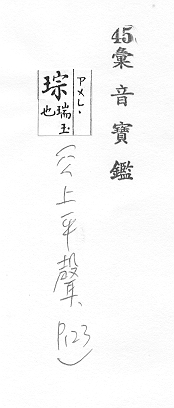 45彙音寶鑑
ㄗㄨㄥ
琮瑞玉也
(公上平聲 P.123)